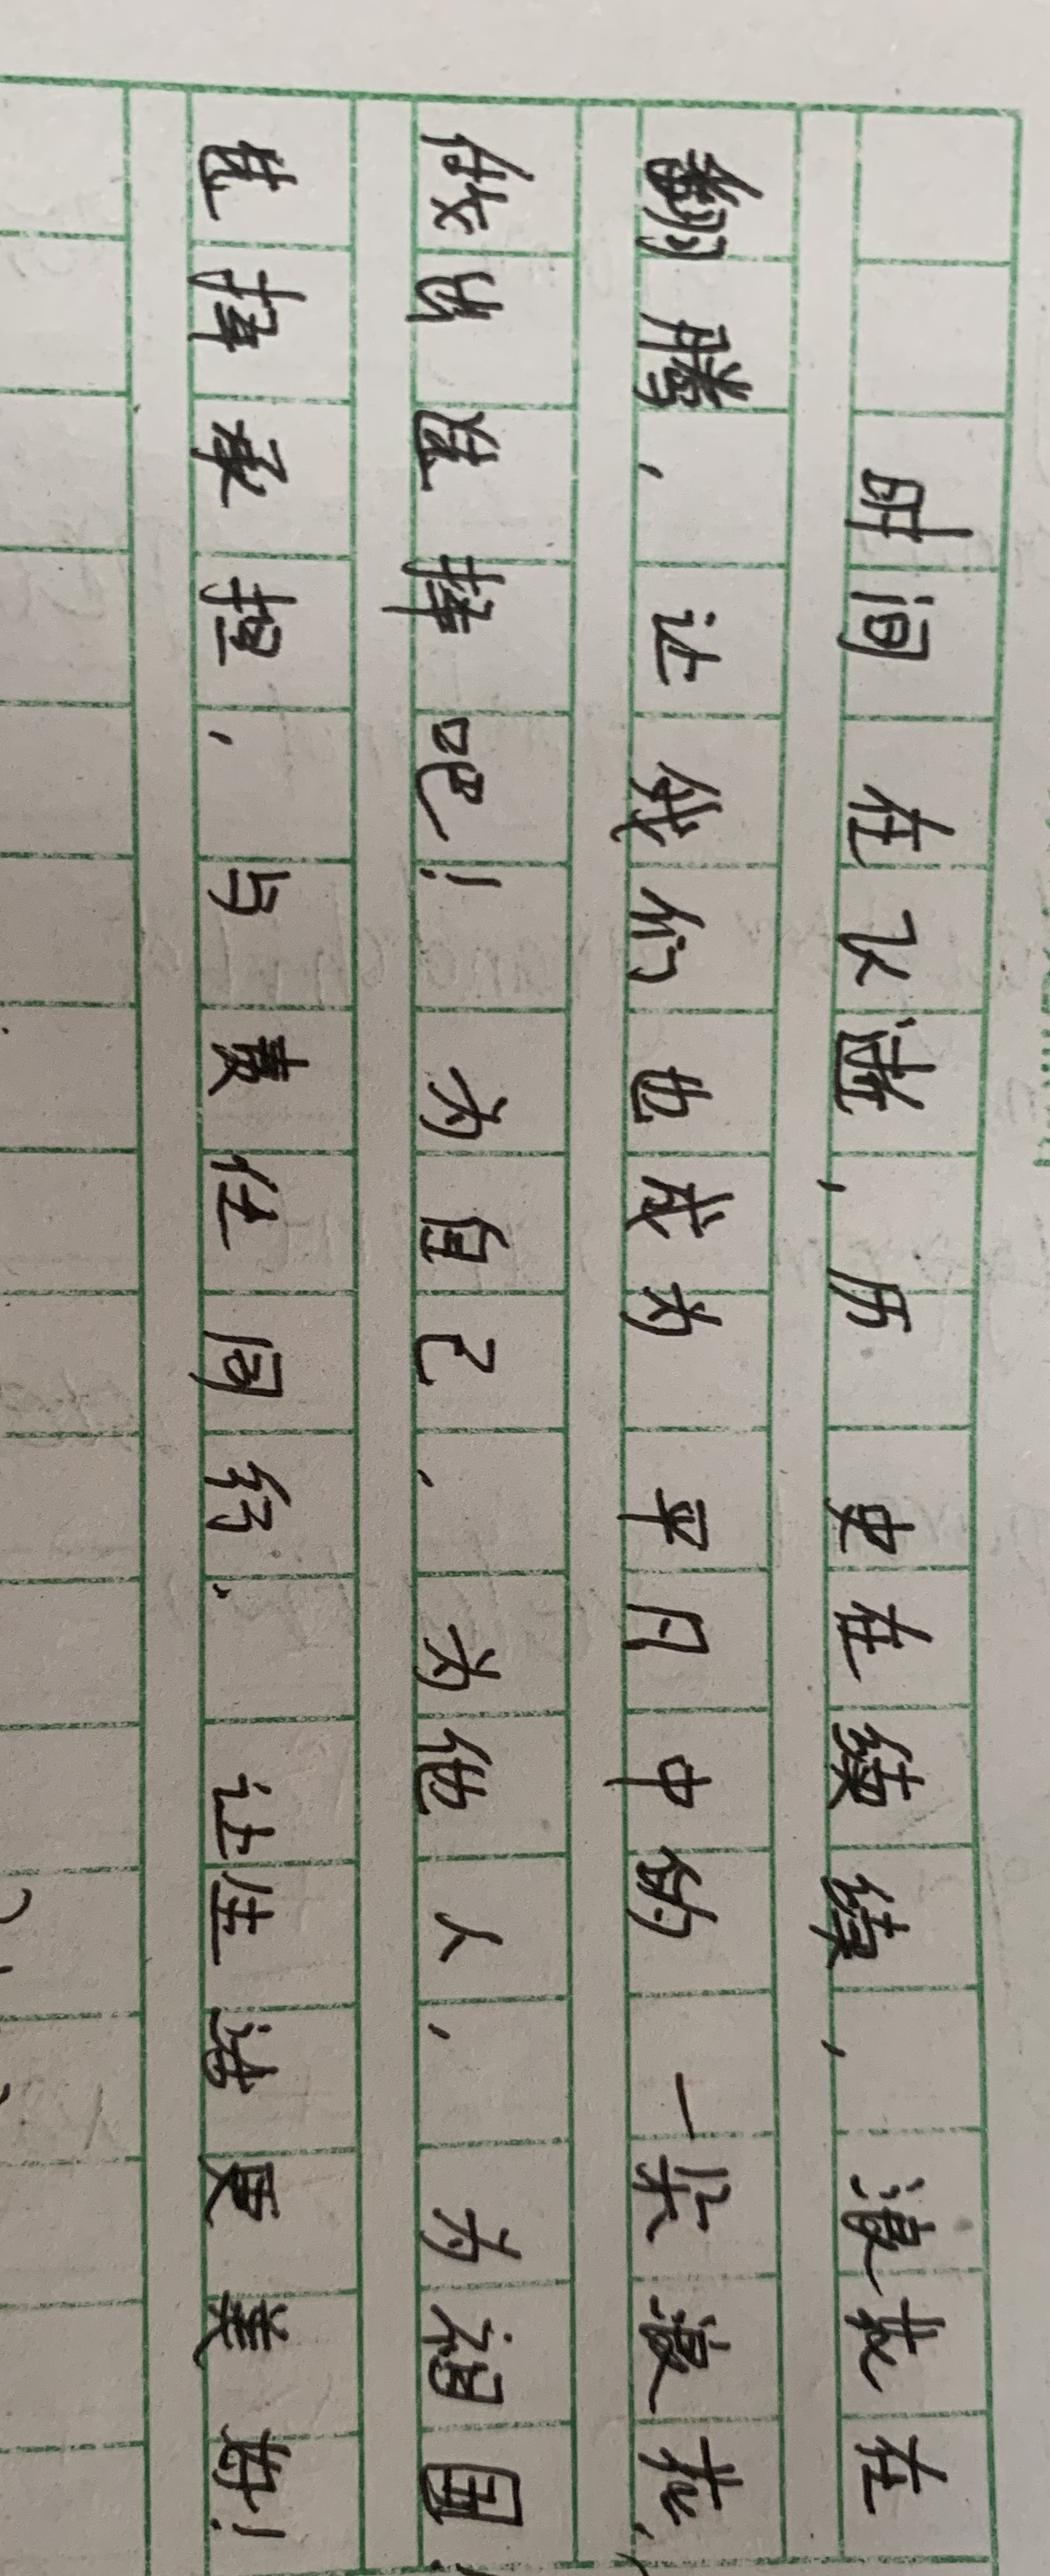 时间在飞逝,历史在续续,浪花在
翻腾,让我们也成为平凡中的一朵浪花,
做出选择吧!为自己、为他人、为祖国,
选择承担,与责任同行,让生活更美好!